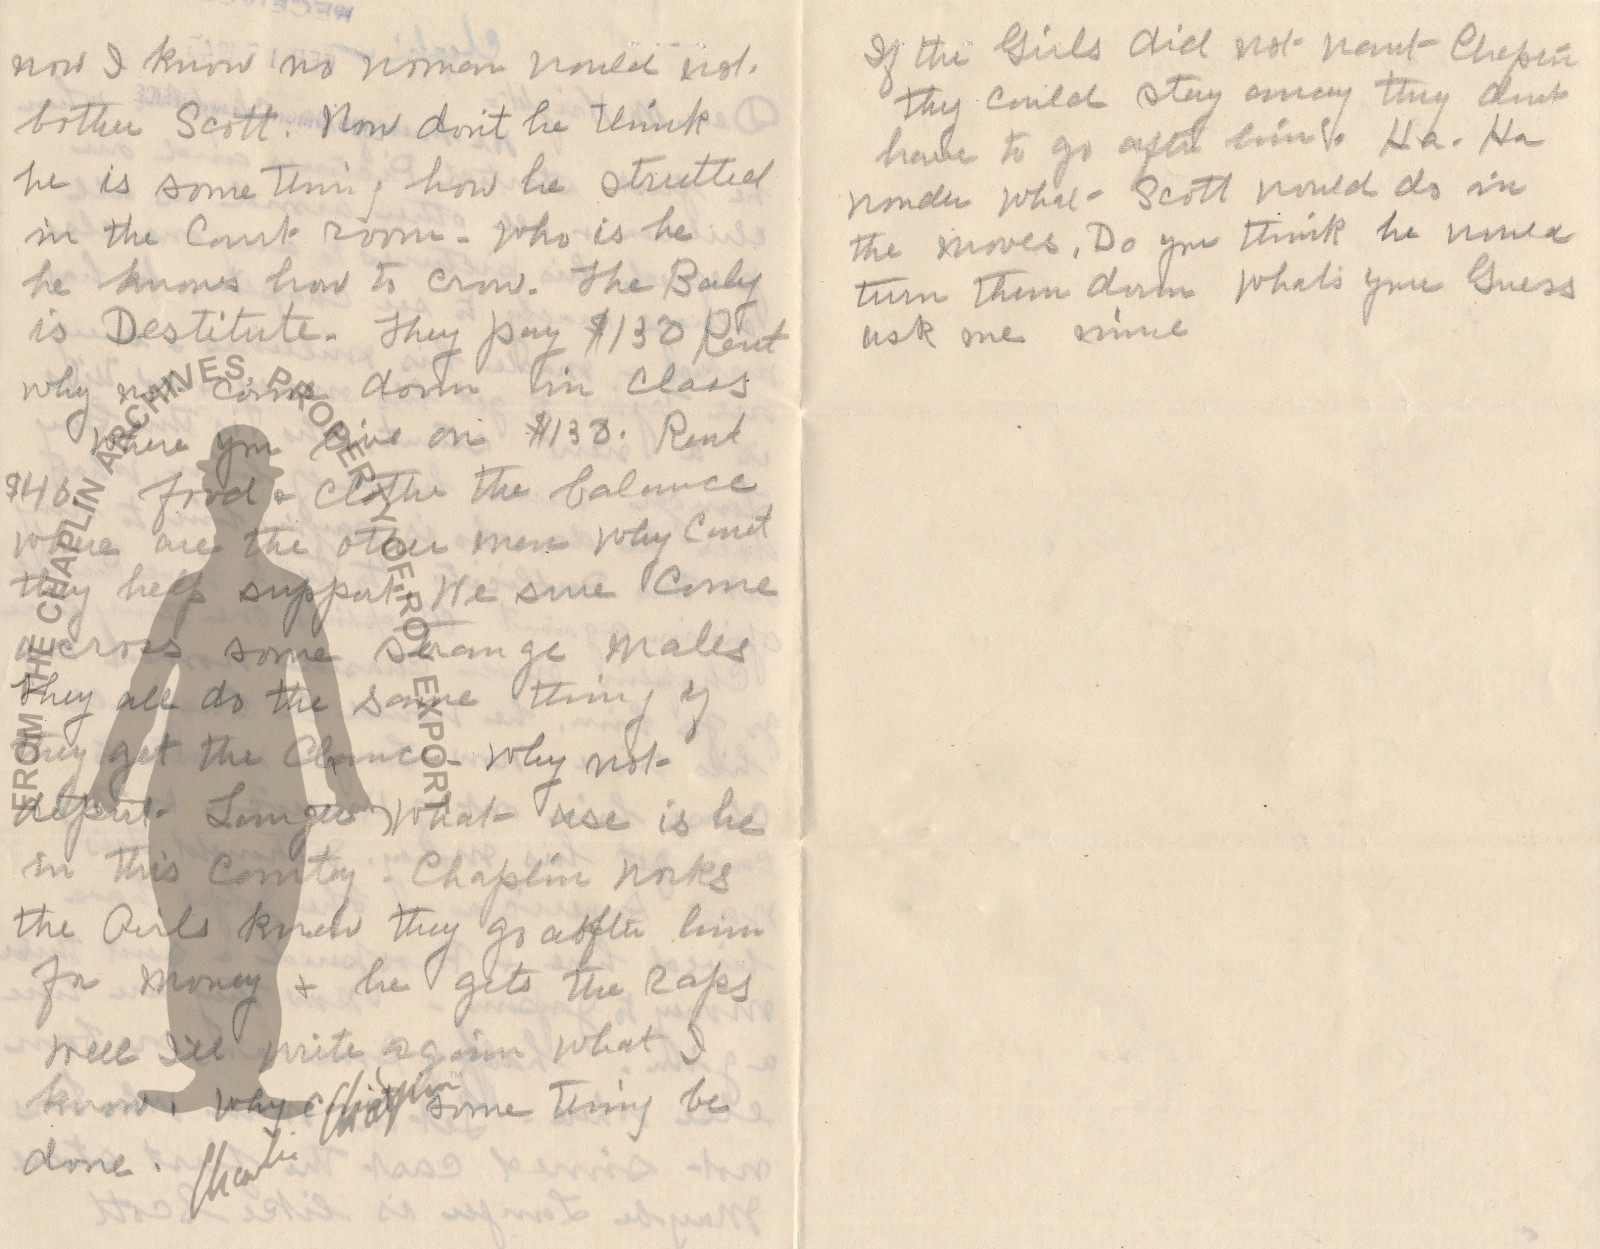 now I know no woman would not.
bother Scott. Now don't he think
he is some thing how he strutted
in the Court room - Who is he
he knows how to crow. The Baby
is Destitute. They pay $130 Rent
why not come down in class
where you live on $130. Rent
$40. food & clothe the balance
where are the other men why Cant
they help support. We sure Come
accross some strange males
They all do the same thing if
they get the Chance - Why not
deport What use is he
in this Country - Chaplin works
the Girls know they go after him
for money + he gets the raps
Well I'll write again what I
know. Why can't some thing be
done.
If the Girls did not want Chaplin
they could stay away they dont
have to go after him. Ha. Ha
wonder what Scott would do in
the movies. Do you think he would
turn them down Whats your Guess
ask me mine
FROM THE CHAPLIN ARCHIVES, PROPERTY OF ROY EXPORT
Charlie Chaplin™